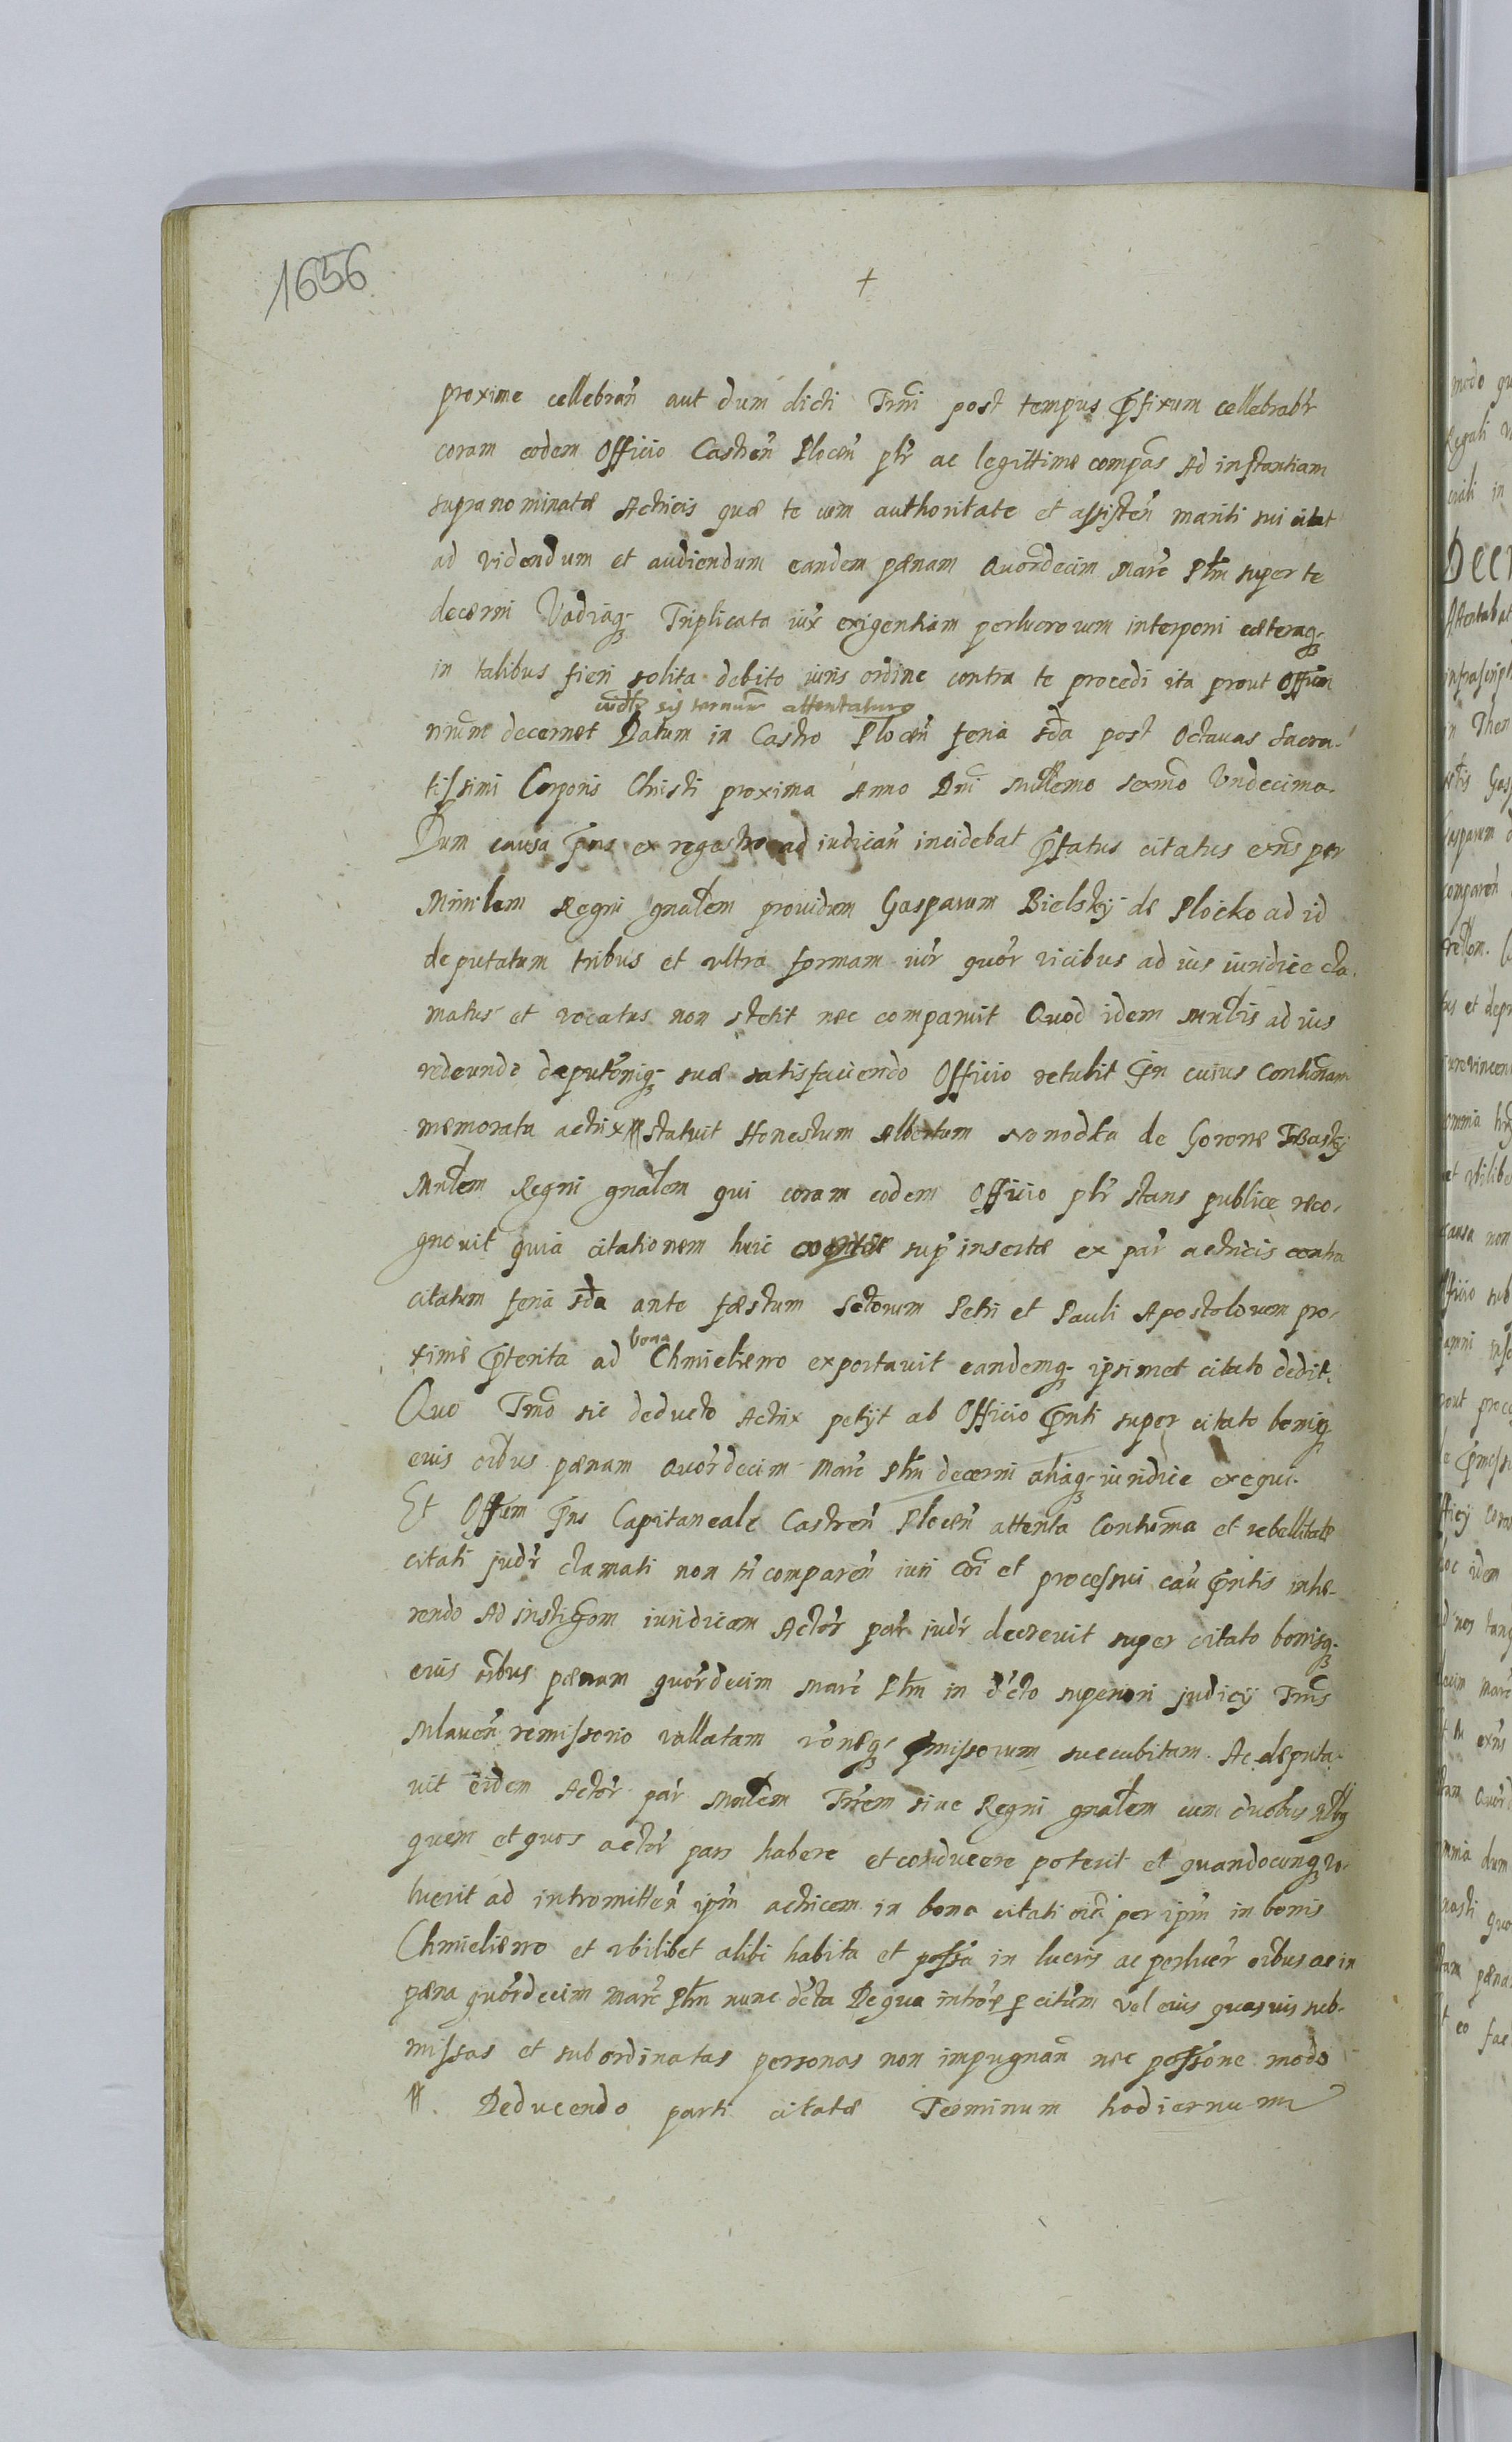 1656
+
proxime cellebrañ aut dum dicti Trmi post tempus pfixum cellebrabr
coram eodem Officio Castreñ Ploceñ plr ac legittime compas Ad instantiam
supranominatæ Actricis quæ te cum authoritate et assisteñ mariti sui citat
ad videndum et audiendum eandem pænam Quordecim Marc Plm super te
decerni Vadiaq; Triplicata iux exigentiam perlucrorum interponi cæteraq;
in talibus fieri solita debito iuris ordine contra te procedi ita prout Offium
sis attentaturo
nrum decernet Datum in Castro Ploceñ feria sda post Octauas Sacra-
tissimi Corporis Christi proxima Anno Dni Millemo sexmo Vndecimo.
Dum causa pns ex regestro ad iudicañ incidebat pfatus citatus exns per
Minrlem Regni gnalem prouidum Gasparum Bielskÿ de Plocko ad id
deputatum tribus et vltra formam iur quor vicibus ad ius iuridice cla-
matus et vocatus non stetit nec comparuit Quod idem Mnrlis ad ius
redeundo deputoniq; suæ satisfaciendo Officio retulit In cuius Contumam
memorata actrix # statuit Honestum Albertum de Gorone
Mnrlem Regni gnalem qui coram eodem Officio plr stans publice reco-
gnouit quia citationem huic sup insertæ ex par actricis contra
citatum feria sda ante fæstum Sctorum Petri et Pauli Apostolorum pro-
bona
xime pterita ad Chmieliewo exportauit eandemq; ipsimet citato dedit.
Quo Trmo sic deducto Actrix petijt ab Officio pnti super citato bonisq;
eius oibus pænam Quordecim Marc Plm decerni aliaq; iuridice exequi.
Et Offium pns Capitaneale Castreñ Ploceñ attenta Contuma et rebellitate
citati judr clamati non tñ compareñ iuri coi et processui cau pntis inhe-
rendo Ad instigom iuridicam Actor par judr decreuit super citato bonisq;
eius oibus pænam quordecim Marc Plm in dcto superiori judicij Trmis
Mlaueñ remissorio vallatam roneq; pmissorum succubitam. Ac deputa-
uit eidem Actor par Mnrlem Trrem siue Regni gnalem cum duobus Nlbg
quem et quos actor pars habere et conducere poterit et quandocunq; vo-
luerit ad intromitteñ ipm actricem in bona citati oia per ipm in bonis
Chmieliewo et vbilibet alibi habita et possa in lucris ac perlucr oibus ac in
pæna quordecim Marc Plm nunc dcta De qua introe p citum vel eius quasuis sub-
missas et subordinatas personas non impugnañ nec possone modo
#. Deducendo parti citatæ Terminum hodiernum